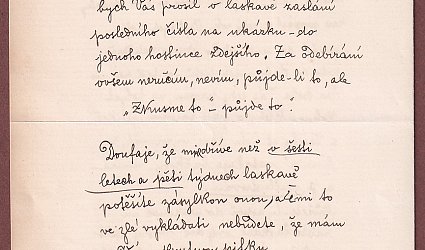 bych Vás prosil o laskavé zaslání
posledního čísla na ukázku – do
jednoho hostince zdejšího. Za odebírání
ovšem neručím, nevím, půjde-li to, ale
„Zkusme to“ – půjde to“.
Doufaje, že mne dříve než v šesti
letech a pěti týdnech laskavě
potěšíte zásylkou onou, a čemi to
ve zlé vykládati nebudete, že mám